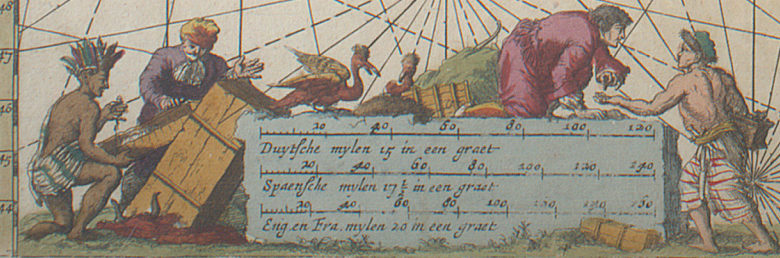 48
47
46
45
44
20 40 60 80 100 120
Duytſche mylen 15 in een graet
20 40 60 80 100 120 140
Spaenſche mylen 17½ in een graet
20 40 60 80 100 120 140 160
Eng. en Fra. mylen 20 in een graet